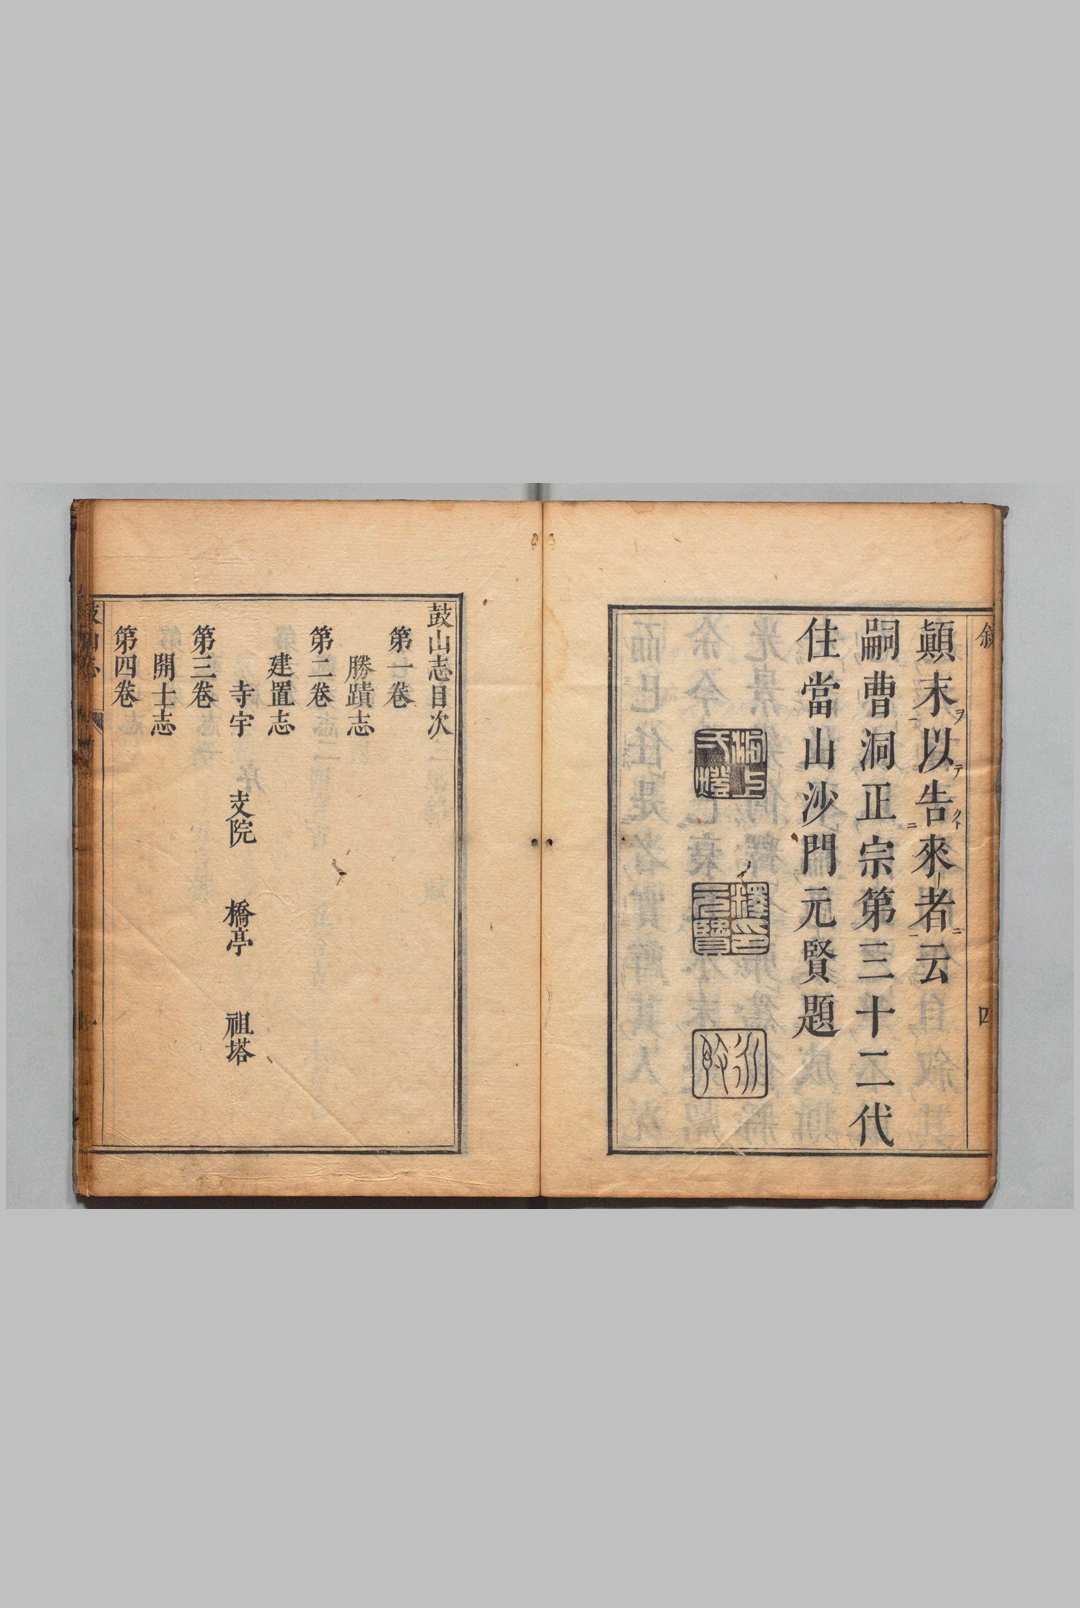 顛末以告來者云
嗣曹洞正宗第三十二代
住當山沙門元賢題
釋印元賢
鼓山志目次
第一卷
勝蹟志
第二卷
建置志
寺宇 支院 橋亭 祖塔
第三卷
開士志
第四卷
鼓山志